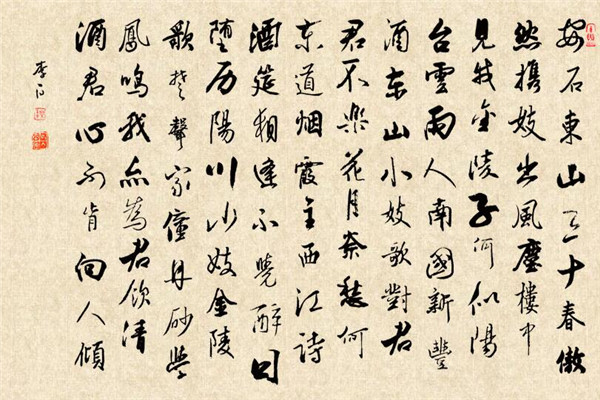 安石東山三十春傲
然携妓出風塵樓中
見我金陵子何似陽
台雲雨人南國新豐
酒東山小妓歌對君
君不樂花月奈愁何
东道烟霞主西江詩
酒筵相逢不覺醉日
堕历陽川小妓金陵
歌楚聲家僮丹砂學
鳳鳴我亦為君飲清
酒君心不肯向人傾
李